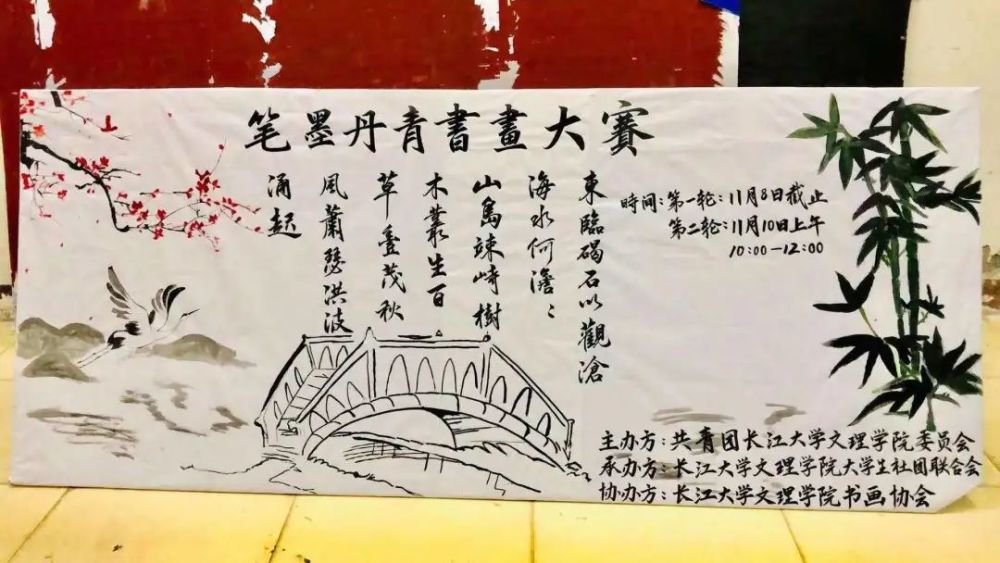 笔墨丹青書畫大賽
東臨碣石以觀滄
海水何澹〻
山島竦峙樹
木叢生百
草豐茂秋
風蕭瑟洪波
涌起
时间:第一轮:11月8日截止
第二轮:11月10日上午
10:00-12:00
主办方:共青团长江大学文理学院委员会
承办方:长江大学文理学院大学生社团联合会
协办方:长江大学文理学院书画协会